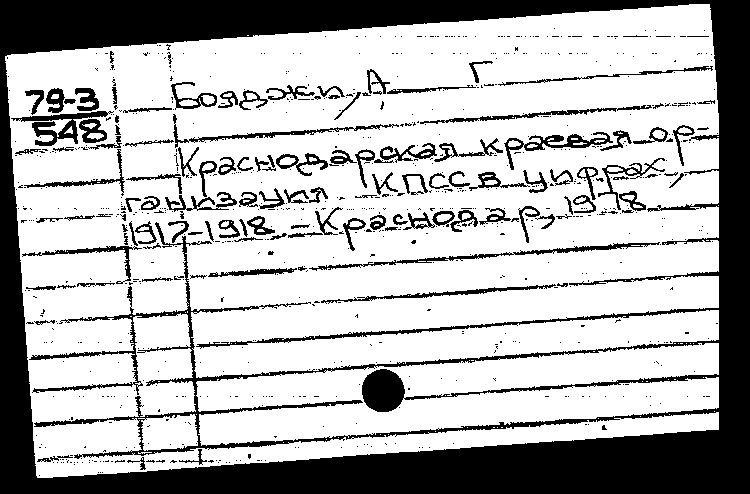 79-3
548
Бояджи, А. Г
Краснодарская краевая ор-
ганизация КПСС в цифрах,
1917-1918. - Краснодар, 1978.